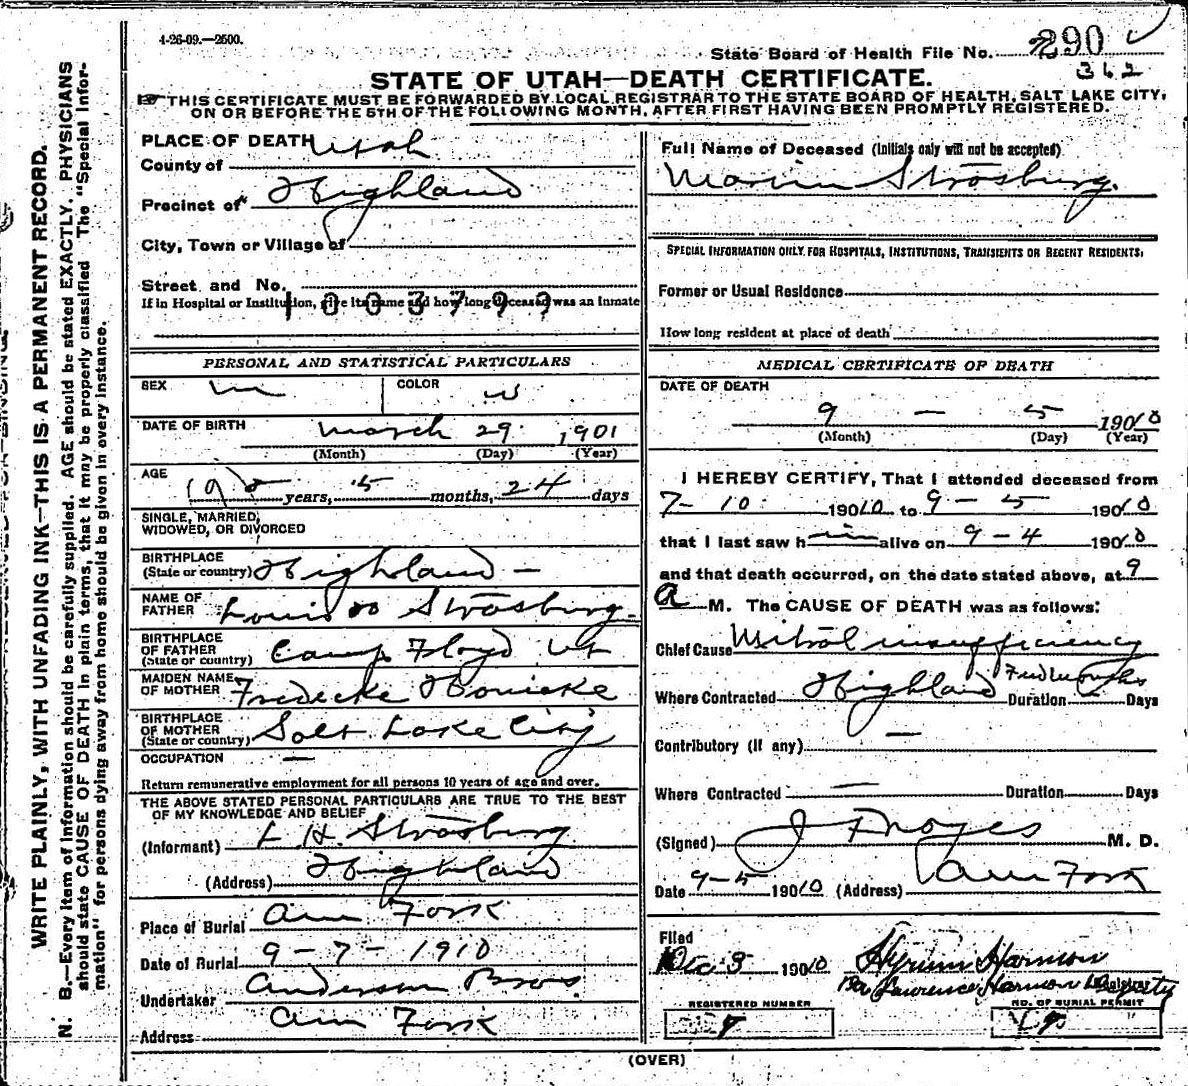 4-26-09.—2500.
State Board of Health File No. 290
362
STATE OF UTAH—DEATH CERTIFICATE.
THIS CERTIFICATE MUST BE FORWARDED BY LOCAL REGISTRAR TO THE STATE BOARD OF HEALTH, SALT LAKE CITY,
ON OR BEFORE THE 5TH OF THE FOLLOWING MONTH, AFTER FIRST HAVING BEEN PROMPTLY REGISTERED.
WRITE PLAINLY, WITH UNFADING INK—THIS IS A PERMANENT RECORD.
N. B.—Every item of information should be carefully supplied. AGE should be stated EXACTLY. PHYSICIANS
should state CAUSE OF DEATH in plain terms, that it may be properly classified. The "Special Infor-
mation" for persons dying away from home should be given in every instance.
PLACE OF DEATH
County of Utah
Precinct of Highland
City, Town or Village of
Street and No.
If in Hospital or Institution, give its name and how long deceased was an inmate
1003799
PERSONAL AND STATISTICAL PARTICULARS
SEX m COLOR w
DATE OF BIRTH March 29 1901
(Month) (Day) (Year)
AGE years, 5 months, 24 days
SINGLE, MARRIED,
WIDOWED, OR DIVORCED
BIRTHPLACE
(State or country) Highland —
NAME OF
FATHER Strasburg
BIRTHPLACE
OF FATHER
(State or country) Camp Floyd Ut
MAIDEN NAME
OF MOTHER
BIRTHPLACE
OF MOTHER
(State or country) Salt Lake City
OCCUPATION —
Return remunerative employment for all persons 10 years of age and over.
THE ABOVE STATED PERSONAL PARTICULARS ARE TRUE TO THE BEST
OF MY KNOWLEDGE AND BELIEF
(Informant) L H. Strasburg
(Address) Highland
Place of Burial Am Fork
Date of Burial 9-7-1910
Undertaker Anderson Bros
Address Am Fork
Full Name of Deceased (Initials only will not be accepted)
Strasburg.
SPECIAL INFORMATION ONLY FOR HOSPITALS, INSTITUTIONS, TRANSIENTS OR RECENT RESIDENTS.
Former or Usual Residence
How long resident at place of death
MEDICAL CERTIFICATE OF DEATH
DATE OF DEATH
9 — 5 1910
(Month) (Day) (Year)
I HEREBY CERTIFY, That I attended deceased from
7-10 1910 to 9-5 1910
that I last saw him alive on 9-4 1910
and that death occurred, on the date stated above, at 9
a M. The CAUSE OF DEATH was as follows:
Chief Cause Mitral insufficiency
Where Contracted Highland Duration Days
Contributory (if any) —
Where Contracted — Duration Days
(Signed) J F Noyes M. D.
Date 9-5 1910 (Address) Am Fork
Filed
Dec 3 1910 Hyrum Harmon
Per Lawrence Harmon Deputy
Registrar
REGISTERED NUMBER
NO. OF BURIAL PERMIT
(OVER)